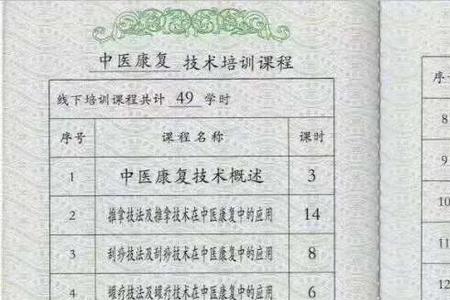 中医康复 技术培训课程
线下培训课程共计 49 学时
序号 课程名称 课时
1 中医康复技术概述 3
2 推拿技法及推拿技术在中医康复中的应用 14
3 刮痧技法及刮痧技术在中医康复中的应用 8
4 罐疗技法及罐疗技术在中医康复中的应用 6
序
8
9
10
11
12